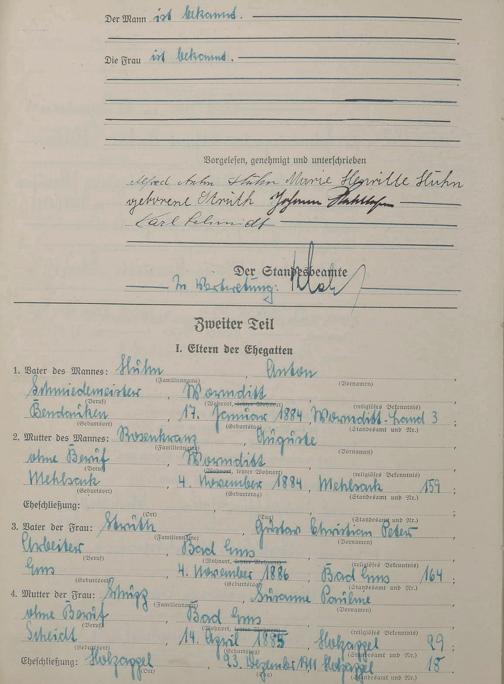 Der Mann ist bekannt.
Die Frau ist bekannt.
Vorgelesen, genehmigt und unterschrieben
Alfred Anton Huhn Marie Henriette Huhn
geborene Struth Johann
Karl Schmidt
Der Standesbeamte
In Vertretung:
Zweiter Teil
I. Eltern der Ehegatten
1. Vater des Mannes: Huhn, Anton,
(Familienname) (Vornamen)
Schmiedemeister, Wormditt,
(Beruf) (Wohnort, letzter Wohnort) (religiöses Bekenntnis)
Bendauken, 17. Januar 1884, Wormditt-Land 3;
(Geburtsort) (Geburtstag) (Standesamt und Nr.)
2. Mutter des Mannes: Rosenkranz, Auguste,
(Familienname) (Vornamen)
ohne Beruf, Wormditt,
(Beruf) (Wohnort, letzter Wohnort) (religiöses Bekenntnis)
Mehlsack, 4. November 1884, Mehlsack 159;
(Geburtsort) (Geburtstag) (Standesamt und Nr.)
Eheschließung:
(Ort) (Tag) (Standesamt und Nr.)
3. Vater der Frau: Struth, Gustav Christian Peter,
(Familienname) (Vornamen)
Arbeiter, Bad Ems,
(Beruf) (Wohnort, letzter Wohnort) (religiöses Bekenntnis)
Ems, 4. November 1886, Bad Ems 164;
(Geburtsort) (Geburtstag) (Standesamt und Nr.)
4. Mutter der Frau: Susanne Pauline,
(Familienname) (Vornamen)
ohne Beruf, Bad Ems,
(Beruf) (Wohnort, letzter Wohnort) (religiöses Bekenntnis)
Scheidt, 14. April 1885, Holzappel 29;
(Geburtsort) (Geburtstag) (Standesamt und Nr.)
Eheschließung: Holzappel, 23. Dezember 1911 Holzappel 15
(Ort) (Tag) (Standesamt und Nr.)